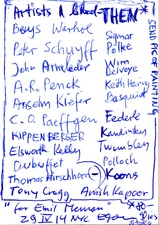 Artists I liked THEN *
Beuys Warhol
Peter Schuyff
John Armleder
A.R. Penck
Anselm Kiefer
C.O. Paeffgen
KIPPENBERGER
Elsworth Kelly
Dubuffet
Thomas Hirschhorn
Tony Cragg
Sigmar
Polke
Wim
Delvoye
Keith Haring
Basquiat
Federle
Kandinsky
Twombly
Polloch
Koons
Anish Kapoor
"for Emil
29 IV 14 NYC
SEND PIC OF PAINTING